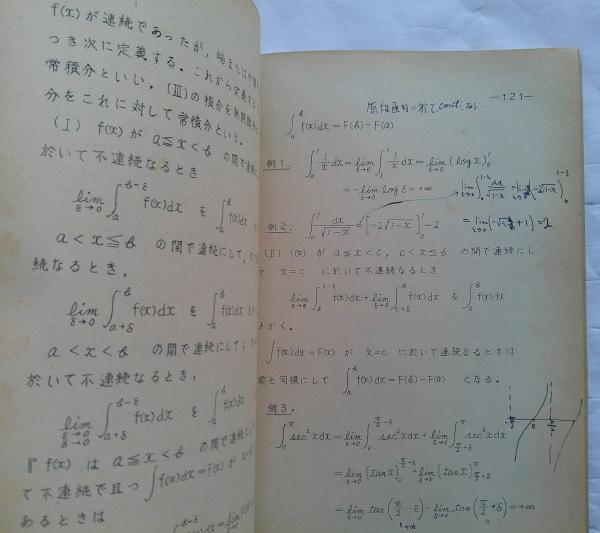 f(x) が連続であったが，端または中間
つき次に定義する．これから定義する
常積分といい，(Ⅲ)の積分を無限積分
分をこれに対して常積分という．
(Ⅰ) f(x) が a≦x<b の間で連続
於いて不連続なるとき
lim ε→0 ∫_a^{b-ε} f(x)dx を ∫_a^b f(x)dx
a<x≦b の間で連続にして，x=
続なるとき，
lim δ→0 ∫_{a+δ}^b f(x)dx を ∫_a^b f(x)dx
a<x<b の間で連続にして；
於いて不連続なるとき，
lim ε→0 δ→0 ∫_{a+δ}^{b-ε} f(x)dx を ∫_a^b f(x)
『f(x) は a≦x<b の間で連続
て不連続で且つ ∫f(x)dx=F(x) が x=
あるときは
—121—
∫_a^b f(x)dx = F(b)-F(a)
例1. ∫_0^1 1/x dx = lim ε→0 ∫_ε^1 1/x dx = lim ε→0 (log x)_ε^1
= -lim ε→0 log ε = +∞
例2. ∫_0^1 dx/√(1-x) = [-2√(1-x)]_0^1 = 2
lim ε→0 ∫_0^{1-ε} dx/√(1-x) = lim ε→0 (-2√(1-x))_0^{1-ε}
(Ⅱ) f(x) が a≦x<c, c<x≦b の間で連続にし
て x=c に於いて不連続なるとき
lim ε→0 ∫_a^{c-ε} f(x)dx + lim δ→0 ∫_{c+δ}^b f(x)dx を ∫_a^b f(x)dx
とかく．
∫f(x)dx=F(x) が x=c に於いて連続なるときは
前と同様にして ∫_a^b f(x)dx=F(b)-F(a) となる．
例3.
∫_0^π sec²x dx = lim ε→0 ∫_0^{π/2-ε} sec²x dx + lim δ→0 ∫_{π/2+δ}^π sec²x dx
= lim ε→0 [tan x]_0^{π/2-ε} + lim δ→0 [tan x]_{π/2+δ}^π
= lim ε→0 tan(π/2-ε) - lim δ→0 tan(π/2+δ) = +∞
+∞
-π/2 0 π/2